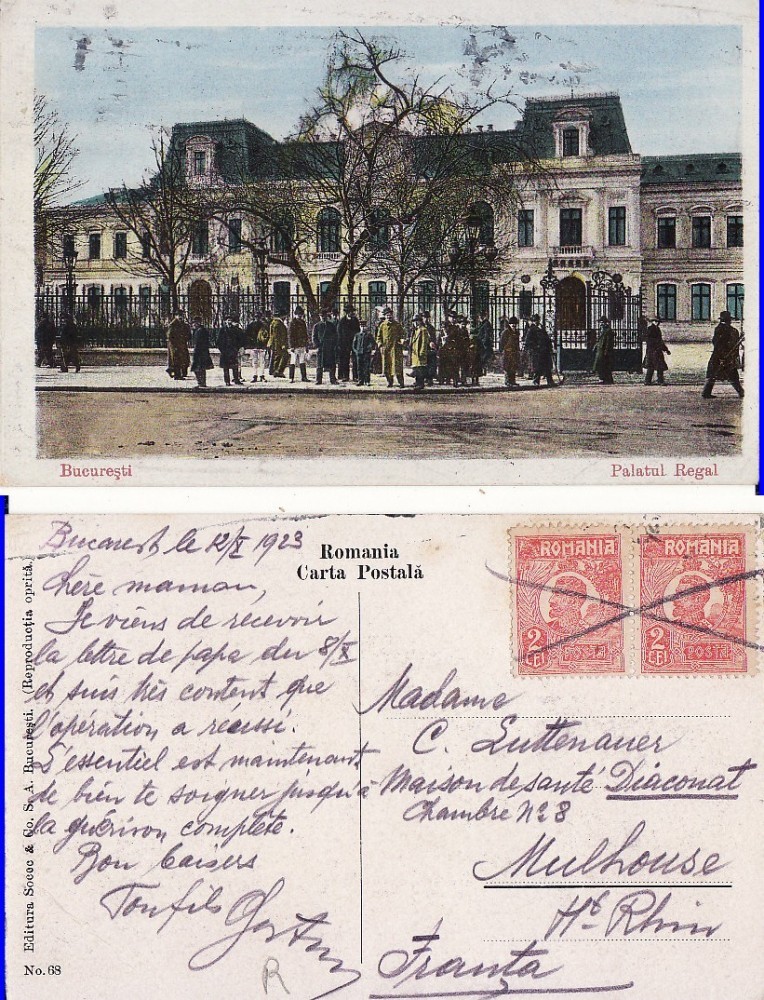 București
Palatul Regal
Bucarest le 12/X 1923
Chère maman,
Je viens de recevoir
la lettre de papa du 8/X
et suis très content que
l'opération a réussi.
L'essentiel est maintenant
de bien te soigner jusqu'à
la guérison complète.
Bon baisers
Ton fils
R
Romania
Carta Postală
ROMANIA
2 LEI
POSTA
ROMANIA
2 LEI
POSTA
Madame
C. Luttenauer
Maison de santé Diaconat
Chambre No 8
Mulhouse
Ht Rhin
Franța
Editura Socec & Co. S. A. București. (Reproducția oprită.)
No. 68